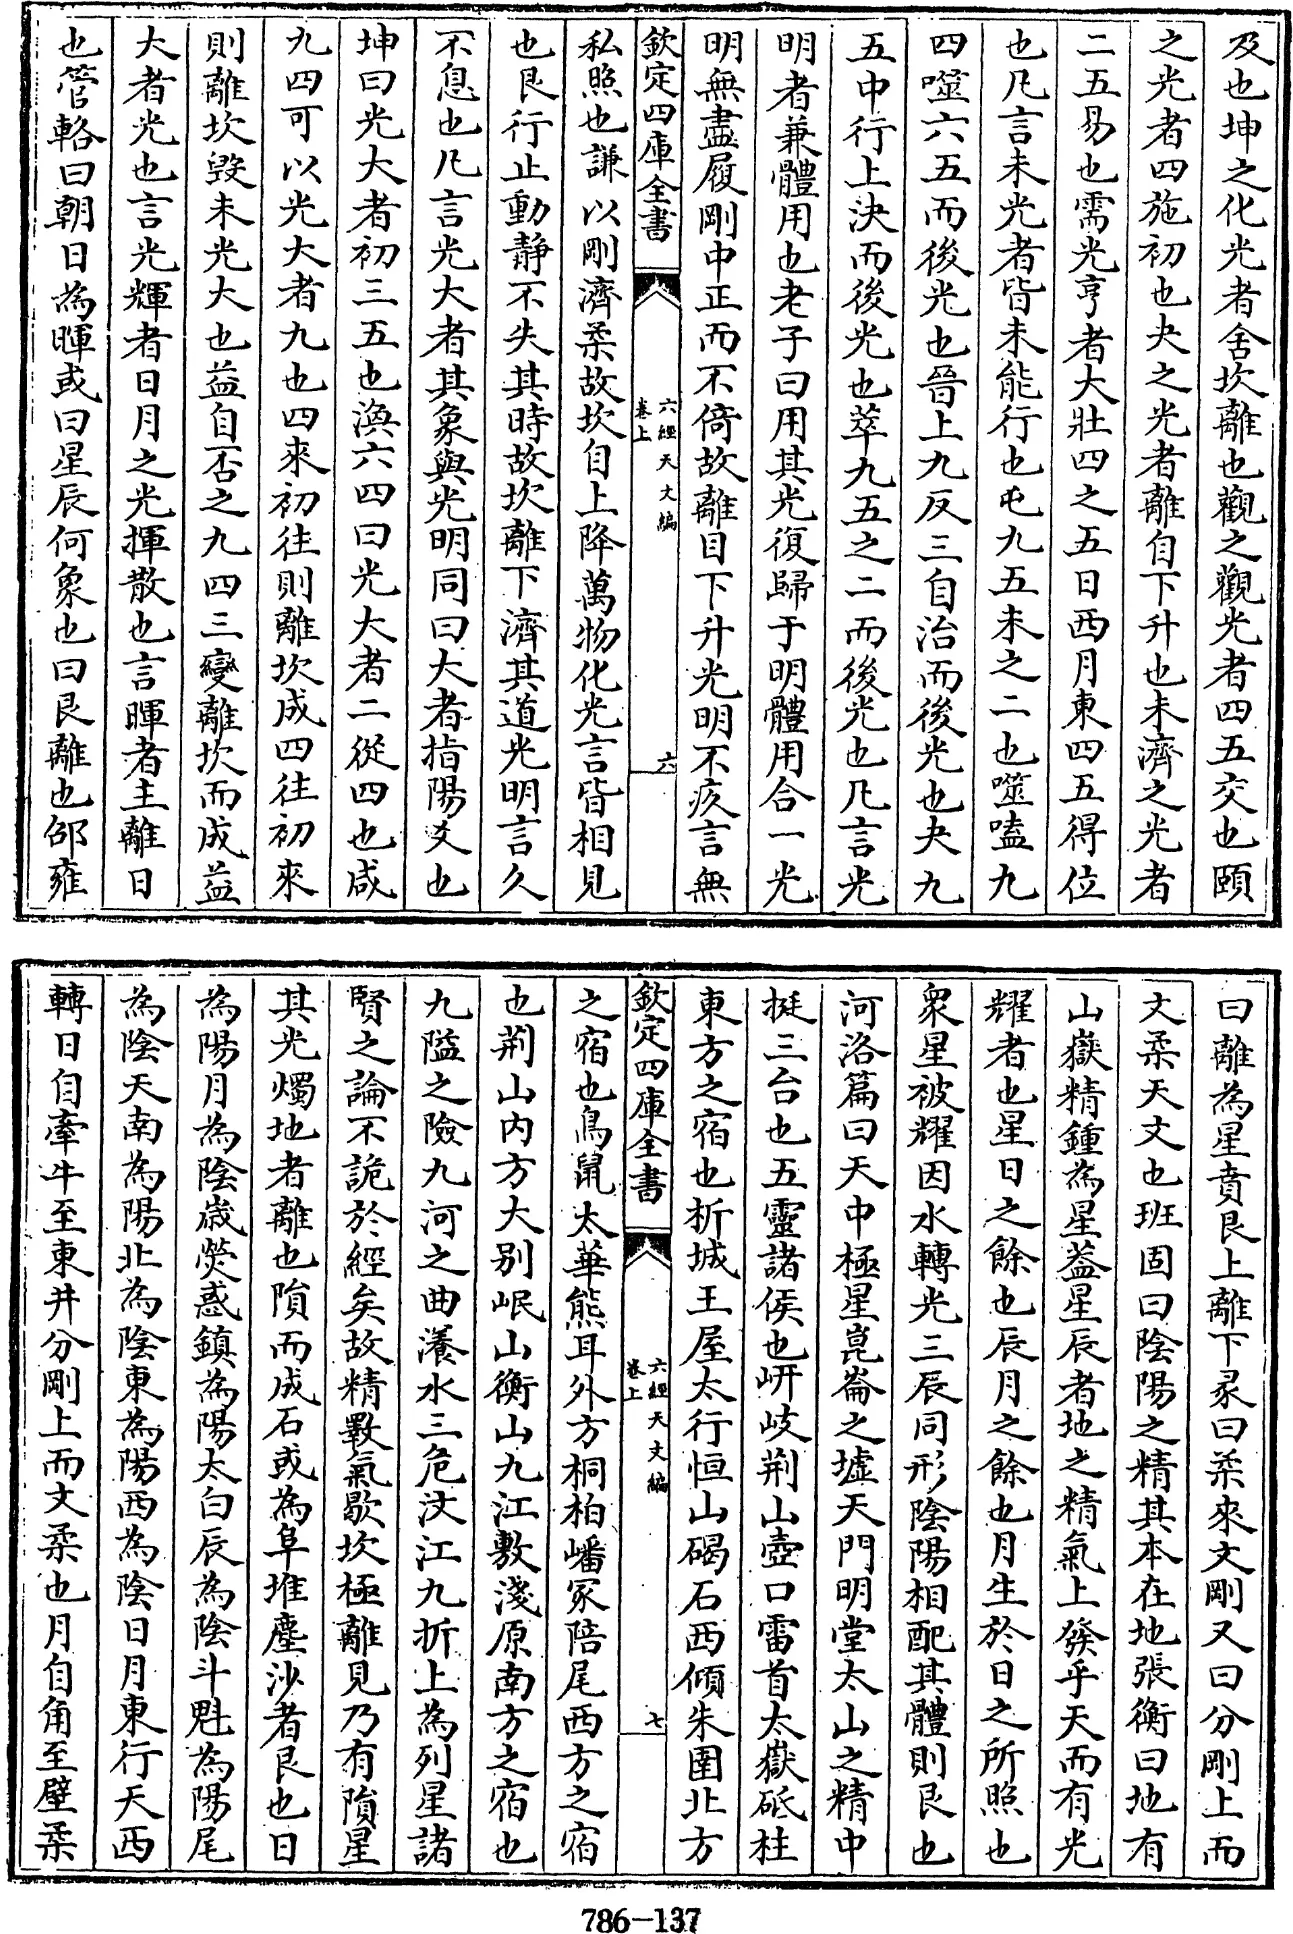 及也坤之化光者舍坎離也觀之觀光者四五交也頤
之光者四施初也夬之光者離自下升也未濟之光者
二五易也需光亨者大壯四之五日西月東四五得位
也凡言未光者皆未能行也屯九五未之二也噬嗑九
四噬六五而後光也晉上九反三自治而後光也夬九
五中行上決而後光也萃九五之二而後光也凡言光
明者兼體用也老子曰用其光復歸于明體用合一光
明無盡履剛中正而不倚故離目下升光明不疚言無
欽定四庫全書
六經天文編
卷上
六
私照也謙以剛濟柔故坎自上降萬物化光言皆相見
也艮行止動靜不失其時故坎離下濟其道光明言久
不息也凡言光大者其象與光明同曰大者指陽爻也
坤曰光大者初三五也渙六四曰光大者二從四也咸
九四可以光大者九也四來初往則離坎成四往初來
則離坎毀未光大也益自否之九四三變離坎而成益
大者光也言光輝者日月之光揮散也言暉者主離日
也管輅曰朝日為暉或曰星辰何象也曰艮離也邵雍
曰離為星賁艮上離下彖曰柔來文剛又曰分剛上而
文柔天文也班固曰陰陽之精其本在地張衡曰地有
山嶽精鍾為星蓋星辰者地之精氣上發乎天而有光
耀者也星日之餘也辰月之餘也月生於日之所照也
衆星被耀因水轉光三辰同形陰陽相配其體則艮也
河洛篇曰天中極星崑崙之墟天門明堂太山之精中
挺三台也五靈諸侯也岍岐荆山壺口雷首太嶽砥柱
東方之宿也析城王屋太行恒山碣石西傾朱圉北方
欽定四庫全書
六經天文編
卷上
七
之宿也鳥鼠太華熊耳外方桐柏嶓冢陪尾西方之宿
也荆山内方大别岷山衡山九江敷淺原南方之宿也
九隘之險九河之曲瀁水三危汶江九折上為列星諸
賢之論不詭於經矣故精斁氣歇坎極離見乃有隕星
其光燭地者離也隕而成石或為阜堆塵沙者艮也日
為陽月為陰歲熒惑鎮為陽太白辰為陰斗魁為陽尾
為陰天南為陽北為陰東為陽西為陰日月東行天西
轉日自牽牛至東井分剛上而文柔也月自角至壁柔
786-137